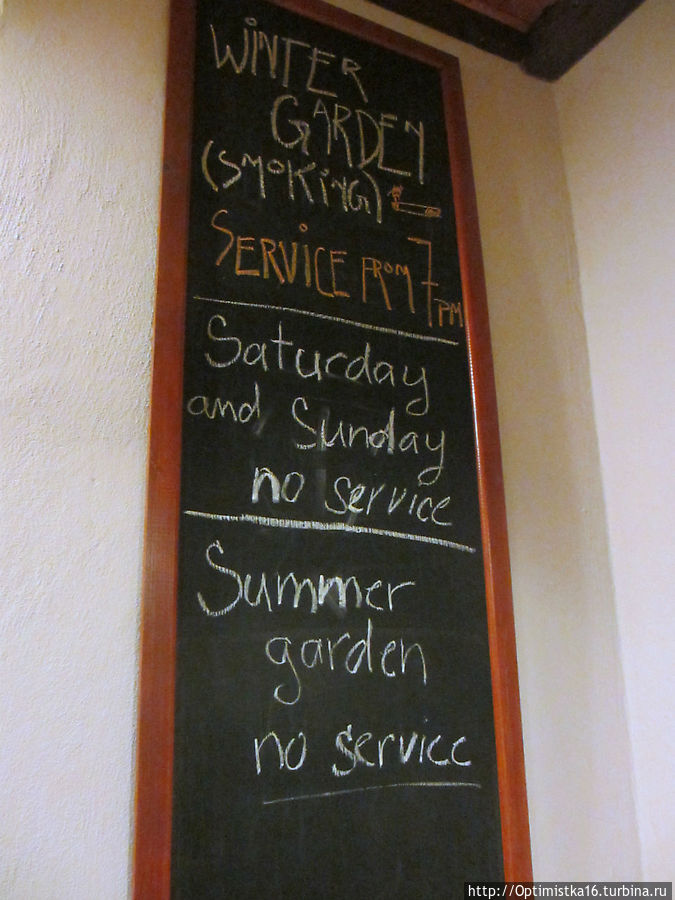 WINTER
GARDEN
(SMOKING)
SERVICE FROM 7 PM
Saturday
and Sunday
no service
Summer
garden
no service
http://Optimistka16.turbina.ru